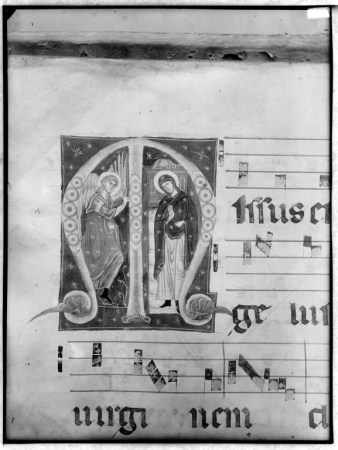 Missus es
ge lus
uirgi nem d